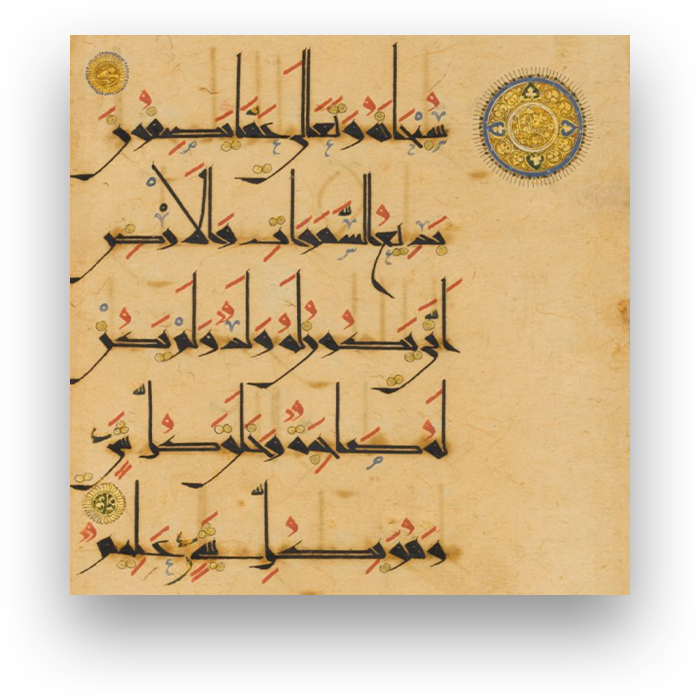 سُبْحَانَهُ وَتَعَالَى عَمَّا يَصِفُونَ
بَدِيعُ السَّمَوَاتِ وَالْأَرْضِ
أَنَّى يَكُونُ لَهُ وَلَدٌ وَلَمْ تَكُنْ
لَهُ صَاحِبَةٌ وَخَلَقَ كُلَّ شَيْءٍ
وَهُوَ بِكُلِّ شَيْءٍ عَلِيمٌ